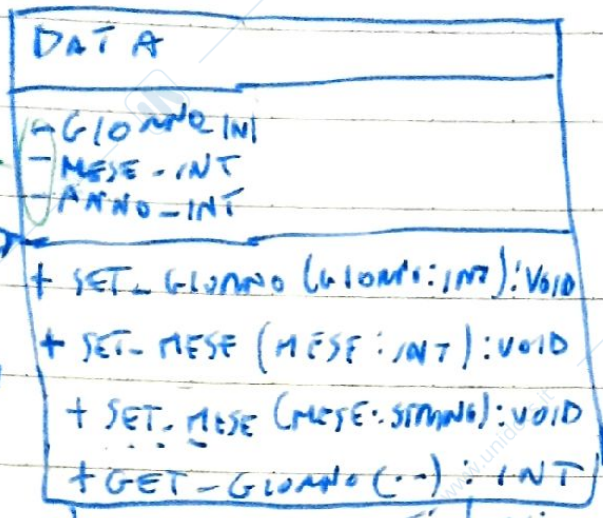 DATA
- GIORNO INT
- MESE - INT
- ANNO - INT
+ SET_GIORNO (GIORNO: INT): VOID
+ SET_MESE (MESE: INT): VOID
+ SET_MESE (MESE: STRING): VOID
+ GET_GIORNO (..): INT
www.unidocs.it